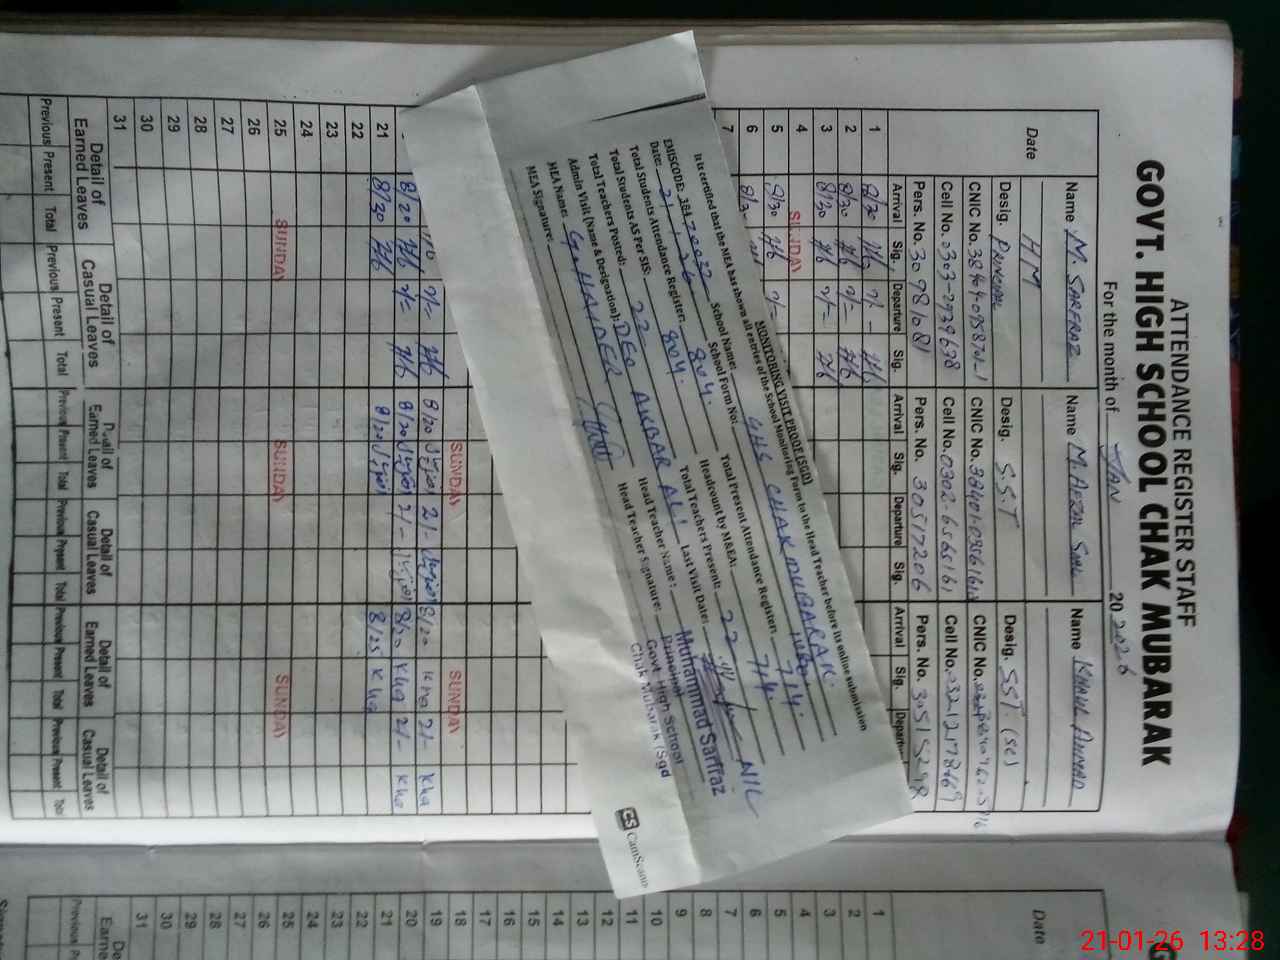 ATTENDANCE REGISTER STAFF
GOVT. HIGH SCHOOL CHAK MUBARAK
For the month of JAN 20 2026
Name M. SARFRAZ Name M. AFZAL Name KHALIL AHMAD
HM
Date Desig. PRINCIPAL Desig. S.S.T Desig. SST. (SC)
CNIC No. CNIC No. CNIC No.
Cell No. 0303-2939638 Cell No. 0302-6565161 Cell No. 03212178469
Pers. No. 30981081 Pers. No. 30517206 Pers. No. 30515298
Arrival Sig. Departure Sig. Arrival Sig. Departure Sig. Arrival Sig. Departu
1 8/30
2 8/30
3 8/30
4 SUNDAY
5 8/30
6 8/3
7
MONITORING VISIT PROOF (SGD)
It is certified that the MEA has shown all entries of the School Monitoring Form to the Head Teacher before its online submission
EMISCODE: 38470032 School Name: GHS CHAK MUBARAK
Date: 21-1-26 School Form No:
Total Students Attendance Register: 804. Total Present Attendance Register: 714.
Total Students AS Per SIS: 804. Headcount by M&EA: 714
Total Teachers Posted: 22 Total Teachers Present: 22
Admin Visit (Name & Designation): DEO AKBAR ALI Last Visit Date: NIL
MEA Name: HAIDER Head Teacher Name:
MEA Signature: Head Teacher Signature:
Muhammad Sarfraz
Principal
Govt. High School
Chak Mubarak (Sgd
CS CamScann
SUNDAY SUNDAY
8/20 2/- 8/20
8/20 2/- 8/20 2/- 8/20 Kha 2/- Kha
21 8/30 8/20 8/25 Kha
22
23
24
25 SUNDAY SUNDAY SUNDAY
26
27
28
29
30
31
Detail of Earned Leaves Detail of Casual Leaves Detail of Earned Leaves Detail of Casual Leaves Detail of Earned Leaves Detail of Casual Leaves
Previous Present Total Previous Present Total Previous Present Total Previous Present Total Previous Present Total Previous Present Tot
Date
1
2
3
4
5
6
7
8
9
10
11
12
13
14
15
16
17
18
19
20
21
22
23
24
25
26
27
28
29
30
31
De
Earne
Previous P
21-01-26 13:28